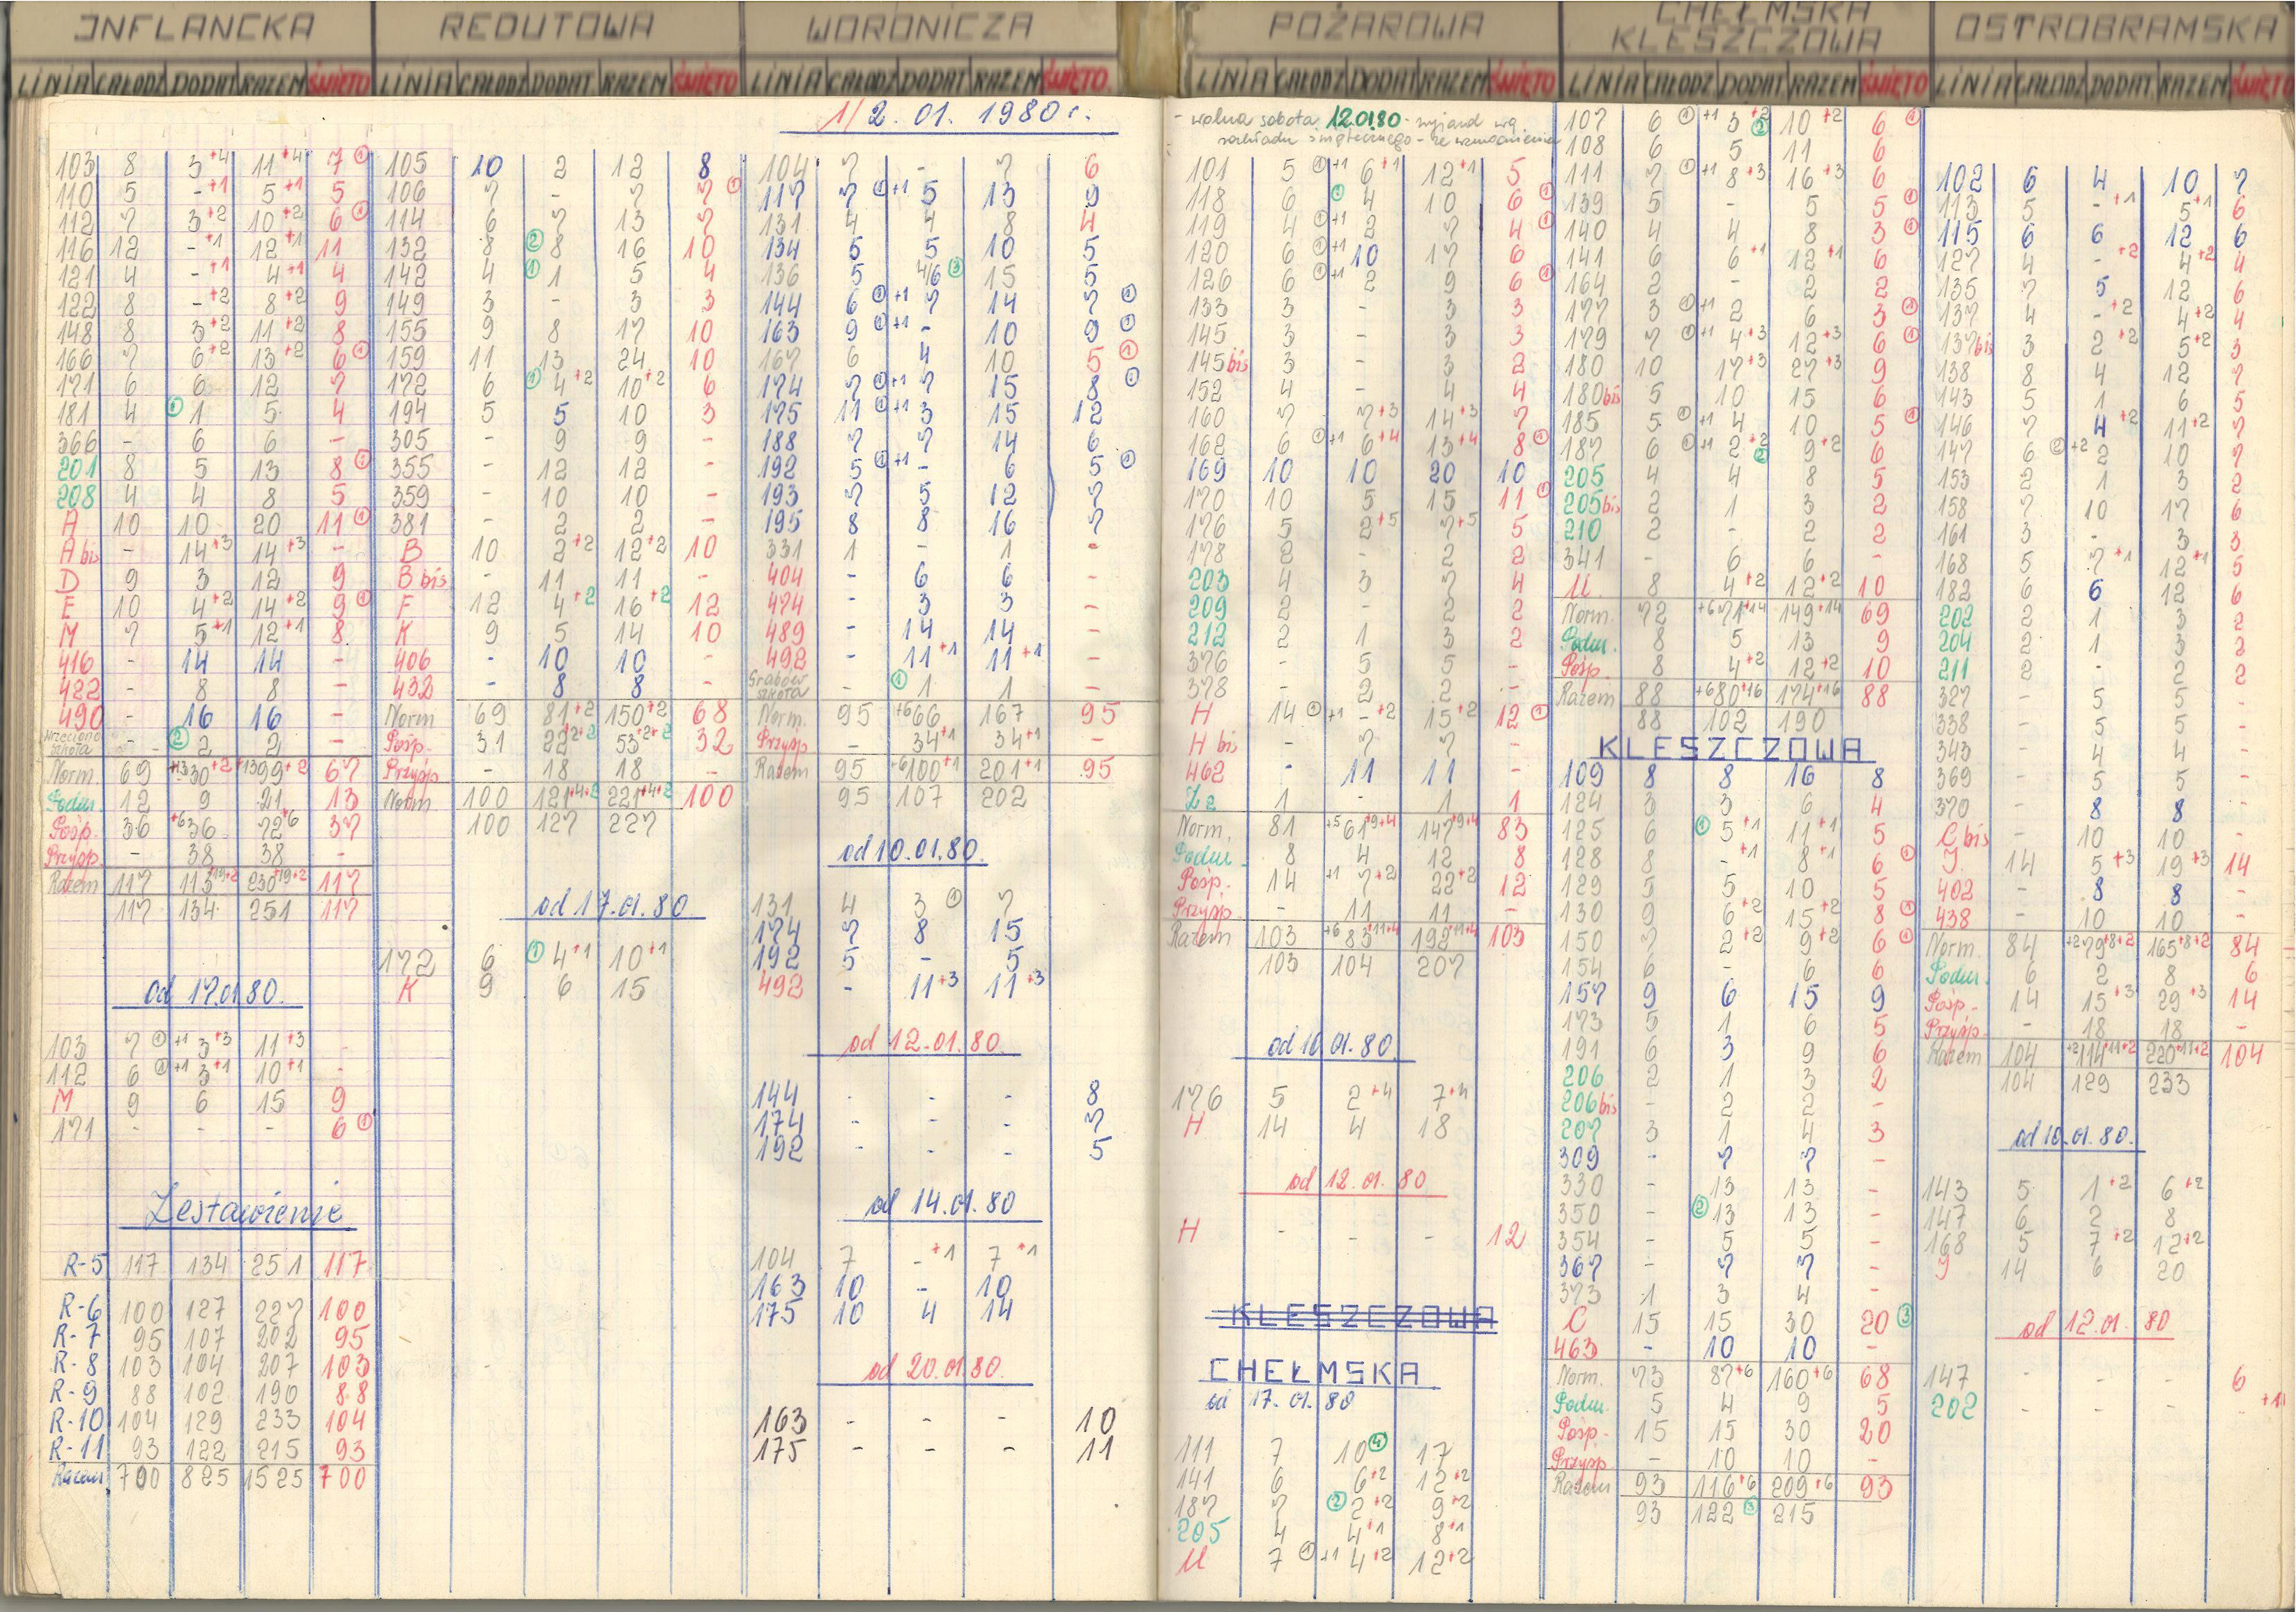 INFLANCKA
LINIA CAŁODZ DODAT RAZEM ŚWIĘTO
103 8 3+4 11+4 7 ①
110 5 -+1 5+1 5
112 7 3+2 10+2 6 ①
116 12 -+1 12+1 11
121 4 -+1 4+1 4
122 8 -+2 8+2 9
148 8 3+2 11+2 8
166 7 6+2 13+2 6 ①
171 6 6 12 7
181 4 ① 1 5 4
366 - 6 6 -
201 8 5 13 8 ①
208 4 4 8 5
A 10 10 20 11 ①
A bis - 14+3 14+3 -
D 9 3 12 9
E 10 4+2 14+2 9 ①
M 7 5+1 12+1 8
416 - 14 14 -
422 - 8 8 -
490 - 16 16 -
szkoła - ② 2 2 -
Norm. 69 +1330+2 +1399+2 67
Podm. 12 9 21 13
Pośp. 36 +636 72+6 37
Przysp. - 38 38 -
Razem 117 113+19+2 230+19+2 117
117 134 251 117
od 17.01.80.
103 7 ①+1 3+3 11+3 -
112 6 ①+1 3+1 10+1 -
M 9 6 15 9
171 - - - 6 ①
Zestawienie
R-5 117 134 251 117
R-6 100 127 227 100
R-7 95 107 202 95
R-8 103 104 207 103
R-9 88 102 190 88
R-10 104 129 233 104
R-11 93 122 215 93
Razem 700 825 1525 700
REDUTOWA
LINIA CAŁODZ DODAT RAZEM ŚWIĘTO
105 10 2 12 8
106 7 - 7 7 ①
114 6 7 13 7
132 8 ② 8 16 10
142 4 ① 1 5 4
149 3 - 3 3
155 9 8 17 10
159 11 13 24 10
172 6 ① 4+2 10+2 6
194 5 5 10 3
305 - 9 9 -
355 - 12 12 -
359 - 10 10 -
381 - 2 2 -
B 10 2+2 12+2 10
B bis - 11 11 -
F 12 4+2 16+2 12
K 9 5 14 10
406 - 10 10 -
432 - 8 8 -
Norm 69 81+2 150+2 68
Pośp. 31 22+2+2 53+2+2 32
Przysp. - 18 18 -
Norm. 100 121+4+2 221+4+2 100
100 127 227
od 17.01.80
172 6 ① 4+1 10+1
K 9 6 15
WORONICZA
LINIA CAŁODZ DODAT RAZEM ŚWIĘTO
1/2.01.1980 r.
104 7 - 7 6
117 7 ①+1 5 13 9
131 4 4 8 4
134 5 5 10 5
136 5 4/6 ③ 15 5
144 6 ①+1 7 14 7 ①
163 9 ①+1 - 10 9 ①
167 6 4 10 5 ①
174 7 ①+1 7 15 8 ①
175 11 ①+1 3 15 12
188 7 7 14 6
192 5 ①+1 - 6 5 ①
193 7 5 12 7
195 8 8 16 7
331 1 - 1 -
404 - 6 6 -
474 - 3 3 -
489 - 14 14 -
492 - 11+1 11+1 -
Grabów szkoła - ① 1 1 -
Norm. 95 +666 167 95
Przysp - 34+1 34+1 -
Razem 95 +6100+1 201+1 95
95 107 202
od 10.01.80.
131 4 3 ① 7
174 7 8 15
192 5 - 5
492 - 11+3 11+3
od 12.01.80.
144 - - - 8
174 - - - 7
192 - - - 5
od 14.01.80
104 7 -+1 7+1
163 10 - 10
175 10 4 14
od 20.01.80.
163 - - - 10
175 - - - 11
POŻAROWA
LINIA CAŁODZ DODAT RAZEM ŚWIĘTO
- wolna sobota 12.01.80 - wyjazd wg
rozkładu świątecznego - ze wzmocnieniem
101 5 ①+1 6+1 12+1 5
118 6 ① 4 10 6 ①
119 4 ①+1 2 7 4 ①
120 6 ①+1 10 17 6
126 6 ①+1 2 9 6 ①
133 3 - 3 3
145 3 - 3 3
145 bis 3 - 3 2
152 4 - 4 4
160 7 7+3 14+3 7
162 6 ①+1 6+4 13+4 8 ①
169 10 10 20 10
170 10 5 15 11 ①
176 5 2+5 7+5 5
178 2 - 2 2
203 4 3 7 4
209 2 - 2 2
212 2 1 3 2
376 - 5 5 -
378 - 2 2 -
H 14 ①+1 -+2 15+2 12 ①
H bis - 7 7 -
462 - 11 11 -
Za 1 - 1 1
Norm. 81 +561+9+4 147+9+4 83
Podm. 8 4 12 8
Pośp. 14 +1 7+2 22+2 12
Przysp - 11 11 -
Razem 103 +683+11+4 192+11+4 103
103 104 207
od 10.01.80.
176 5 2+4 7+4
H 14 4 18
od 12.01.80
H - - - 12
KLESZCZOWA
CHEŁMSKA
od 17.01.80
111 7 10 ④ 17
141 6 6+2 12+2
187 7 ② 2+2 9+2
205 4 4+1 8+1
M 7 ①+1 4+2 12+2
CHEŁMSKA
KLESZCZOWA
LINIA CAŁODZ DODAT RAZEM ŚWIĘTO
107 6 ①+1 3+2 ② 10+2 6 ①
108 6 5 11 6
111 7 ①+1 8+3 16+3 6
139 5 - 5 5 ①
140 4 4 8 3 ①
141 6 6+1 12+1 6
164 2 - 2 2
177 3 ①+1 2 6 3 ①
179 7 ①+1 4+3 12+3 6 ①
180 10 17+3 27+3 9
180 bis 5 10 15 6
185 5 ①+1 4 10 5 ①
187 6 ①+1 2+2 ② 9+2 6
205 4 4 8 5
205 bis 2 1 3 2
210 2 - 2 2
341 - 6 6 -
M 8 4+2 12+2 10
Norm. 72 +671+14 149+14 69
Podm. 8 5 13 9
Pośp. 8 4+2 12+2 10
Razem 88 +680+16 174+16 88
88 102 190
KLESZCZOWA
109 8 8 16 8
124 3 3 6 4
125 6 ① 5+1 11+1 5
128 8 -+1 8+1 6 ①
129 5 5 10 5
130 9 6+2 15+2 8 ①
150 7 2+2 9+2 6 ①
154 6 - 6 6
157 9 6 15 9
173 5 1 6 5
191 6 3 9 6
206 2 1 3 2
206 bis - 2 2 -
207 3 1 4 3
309 - 7 7 -
330 - 13 13 -
350 - ② 13 13 -
354 - 5 5 -
367 - 7 7 -
373 1 3 4 -
C 15 15 30 20 ③
463 - 10 10 -
Norm. 73 87+6 160+6 68
Podm. 5 4 9 5
Pośp. 15 15 30 20
Przysp - 10 10 -
Razem 93 116+6 209+6 93
93 122 ③ 215
OSTROBRAMSKA
LINIA CAŁODZ DODAT RAZEM ŚWIĘTO
102 6 4 10 7
113 5 -+1 5+1 6
115 6 6 12 6
127 4 -+2 4+2 4
135 7 5 12 6
137 4 -+2 4+2 4
137 bis 3 2+2 5+2 3
138 8 4 12 7
143 5 1 6 5
146 7 4+2 11+2 7
147 6 ②+2 2 10 7
153 2 1 3 2
158 7 10 17 6
161 3 - 3 3
168 5 7+1 12+1 5
182 6 6 12 6
202 2 1 3 2
204 2 1 3 2
211 2 - 2 2
327 - 5 5 -
338 - 5 5 -
343 - 4 4 -
369 - 5 5 -
370 - 8 8 -
C bis - 10 10 -
J. 14 5+3 19+3 14
402 - 8 8 -
438 - 10 10 -
Norm. 84 +279+8+2 165+8+2 84
Podm. 6 2 8 6
Pośp. 14 15+3 29+3 14
Przysp - 18 18 -
Razem 104 +2114+11+2 220+11+2 104
104 129 233
od 10.01.80.
143 5 1+2 6+2
147 6 2 8
168 5 7+2 12+2
J 14 6 20
od 12.01.80
147 - - - 6
202 - - - - +1